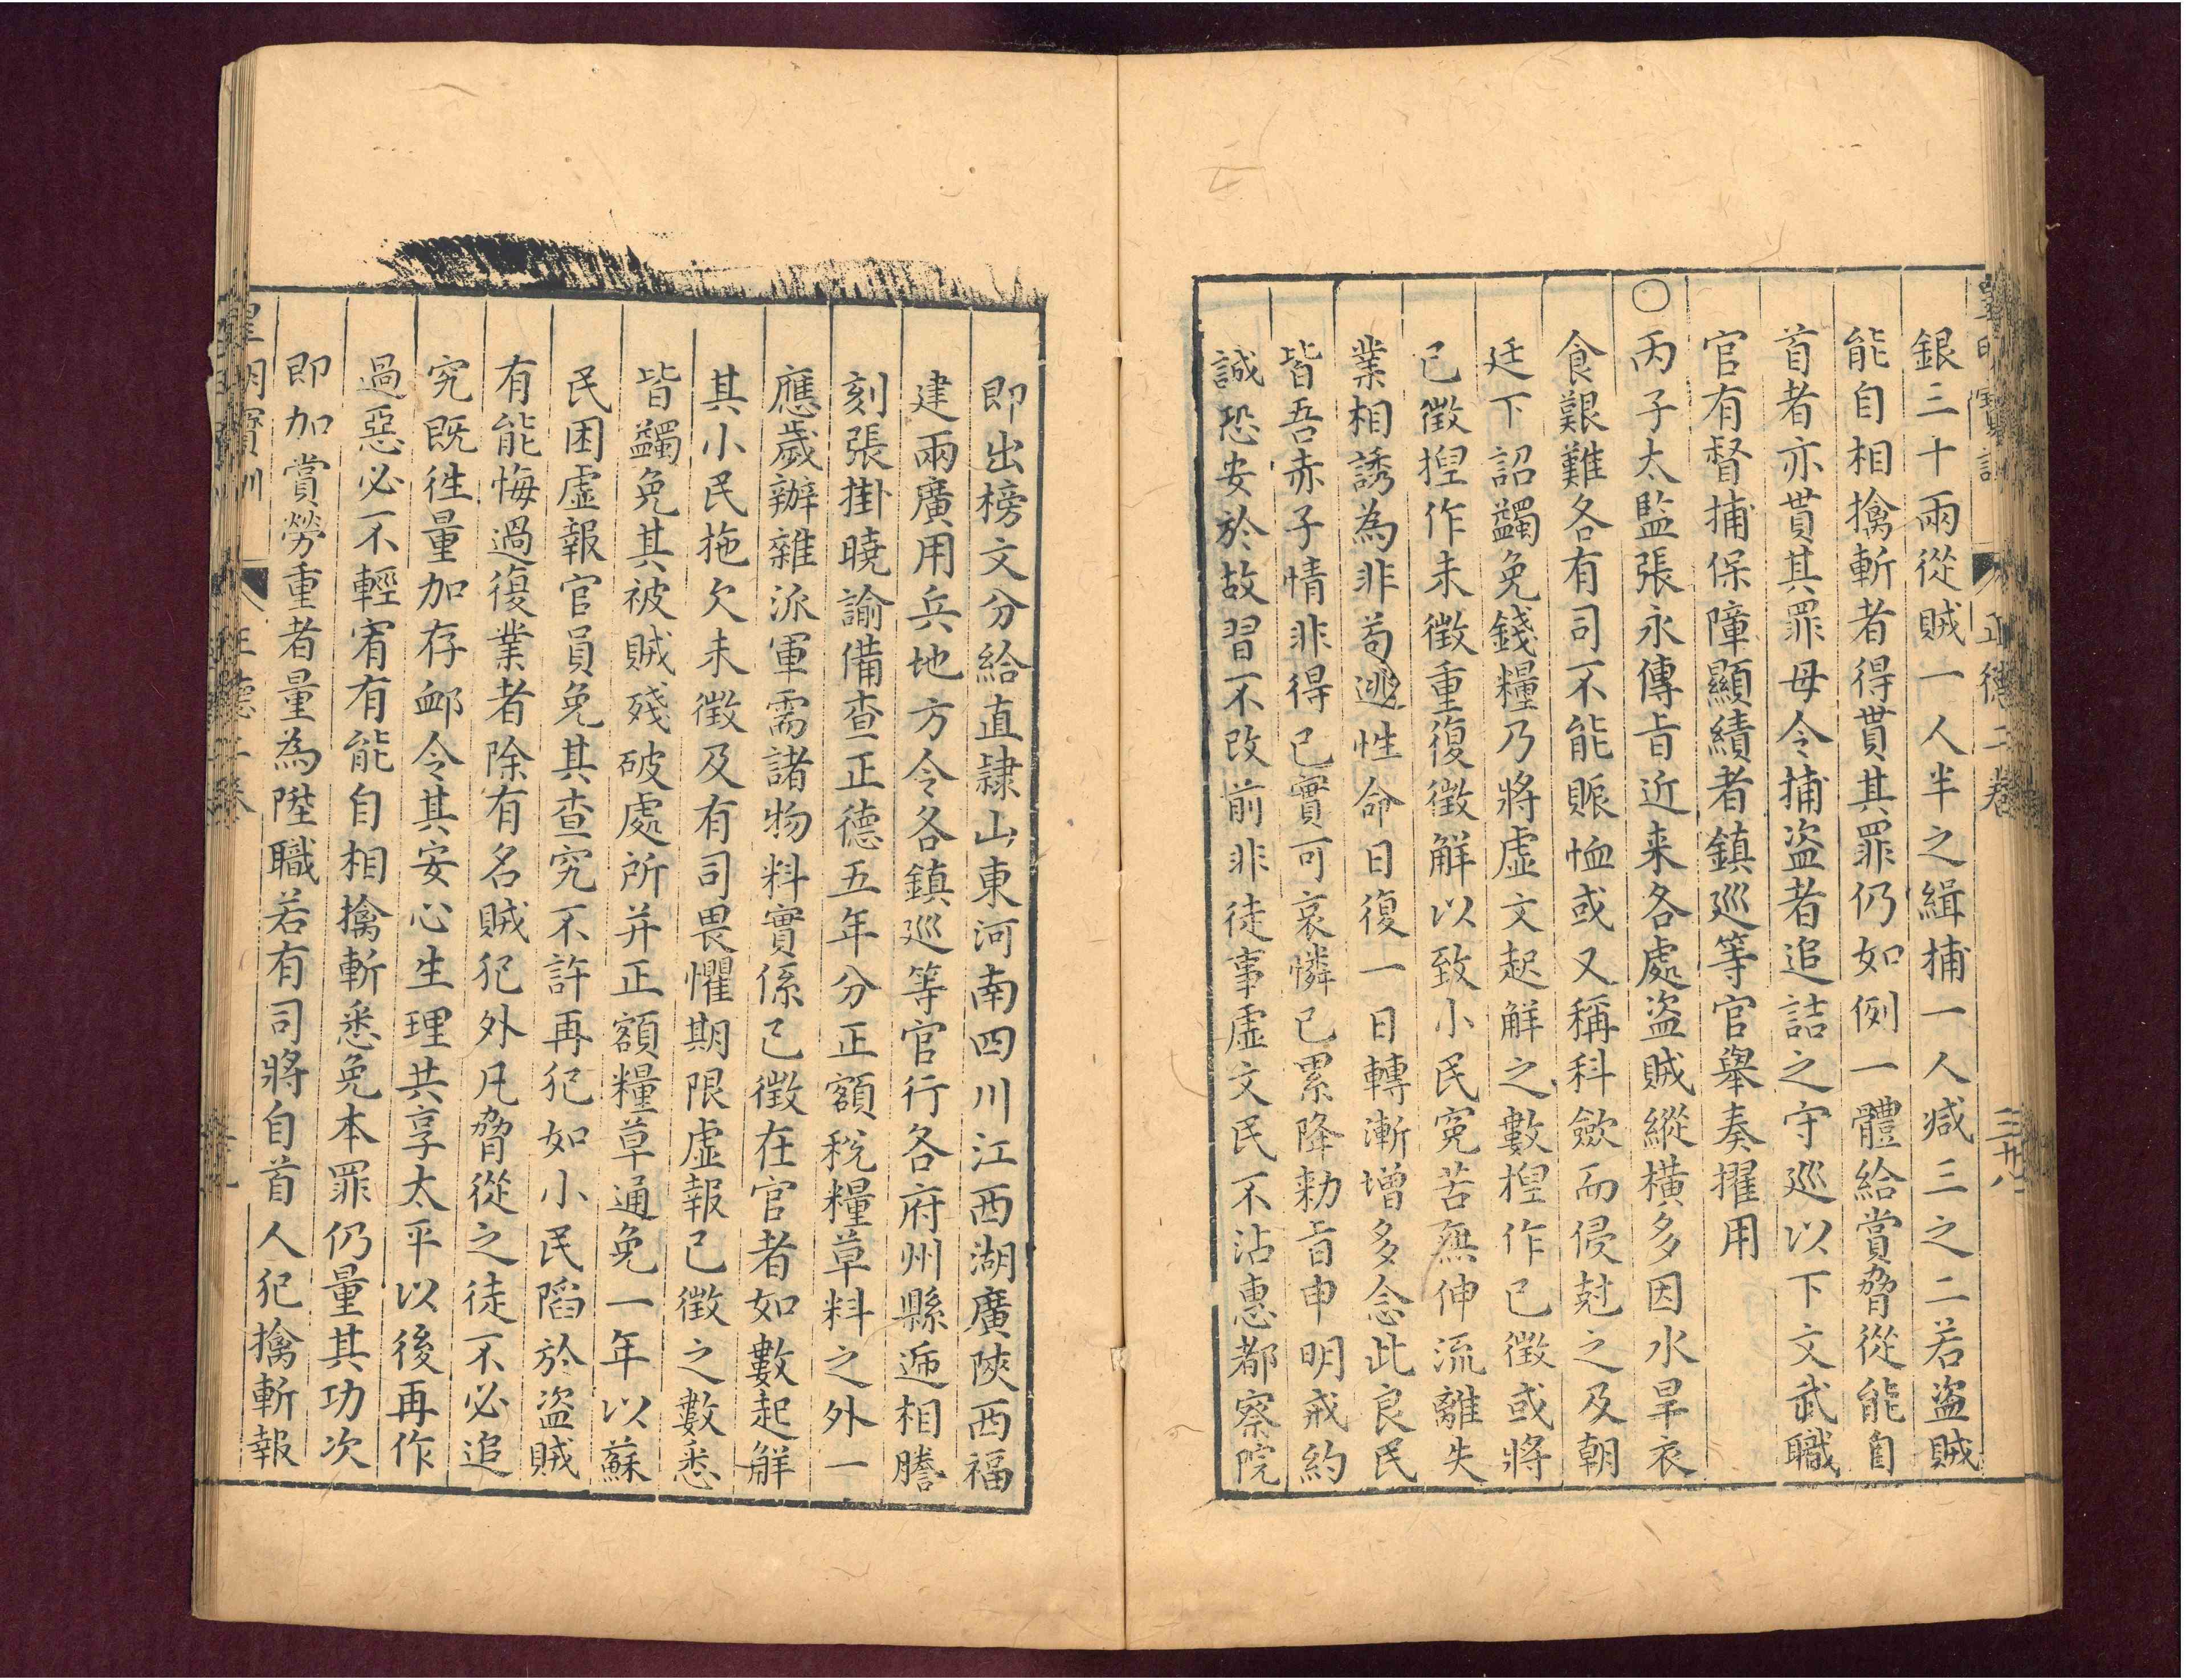 皇明寶訓 正德二卷 三十八
銀三十兩從賊一人半之緝捕一人减三之二若盜賊
能自相擒斬者得貰其罪仍如例一體給賞脅從能自
首者亦貰其罪毋令捕盗者追詰之守巡以下文武職
官有督捕保障顯績者鎮巡等官舉奏擢用
○丙子太監張永傳旨近来各處盗賊縱横多因水旱衣
食艱難各有司不能賑恤或又稱科歛而侵尅之及朝
廷下詔蠲免錢糧乃將虚文起解之數捏作已徵或將
已徵捏作未徵重復徵解以致小民寃苦無伸流離失
業相誘為非苟逃性命日復一日轉漸增多念此良民
皆吾赤子情非得已實可哀憐已累降勑旨申明戒約
誠恐安於故習不改前非徒事虚文民不沾惠都察院
即出榜文分給直隷山東河南四川江西湖廣陜西福
建兩廣用兵地方令各鎮巡等官行各府州縣逓相謄
刻張掛曉諭備查正德五年分正額稅糧草料之外一
應歲辦雜派軍需諸物料實係已徵在官者如數起解
其小民拖欠未徵及有司畏懼期限虚報已徵之數悉
皆蠲免其被賊殘破處所并正額糧草通免一年以蘇
民困虚報官員免其查究不許再犯如小民陷於盗賊
有能悔過復業者除有名賊犯外凡脅從之徒不必追
究既徃量加存䘏令其安心生理共享太平以後再作
過惡必不輕宥有能自相擒斬悉免本罪仍量其功次
即加賞勞重者量為陞職若有司將自首人犯擒斬報
皇明寶訓 正德二卷